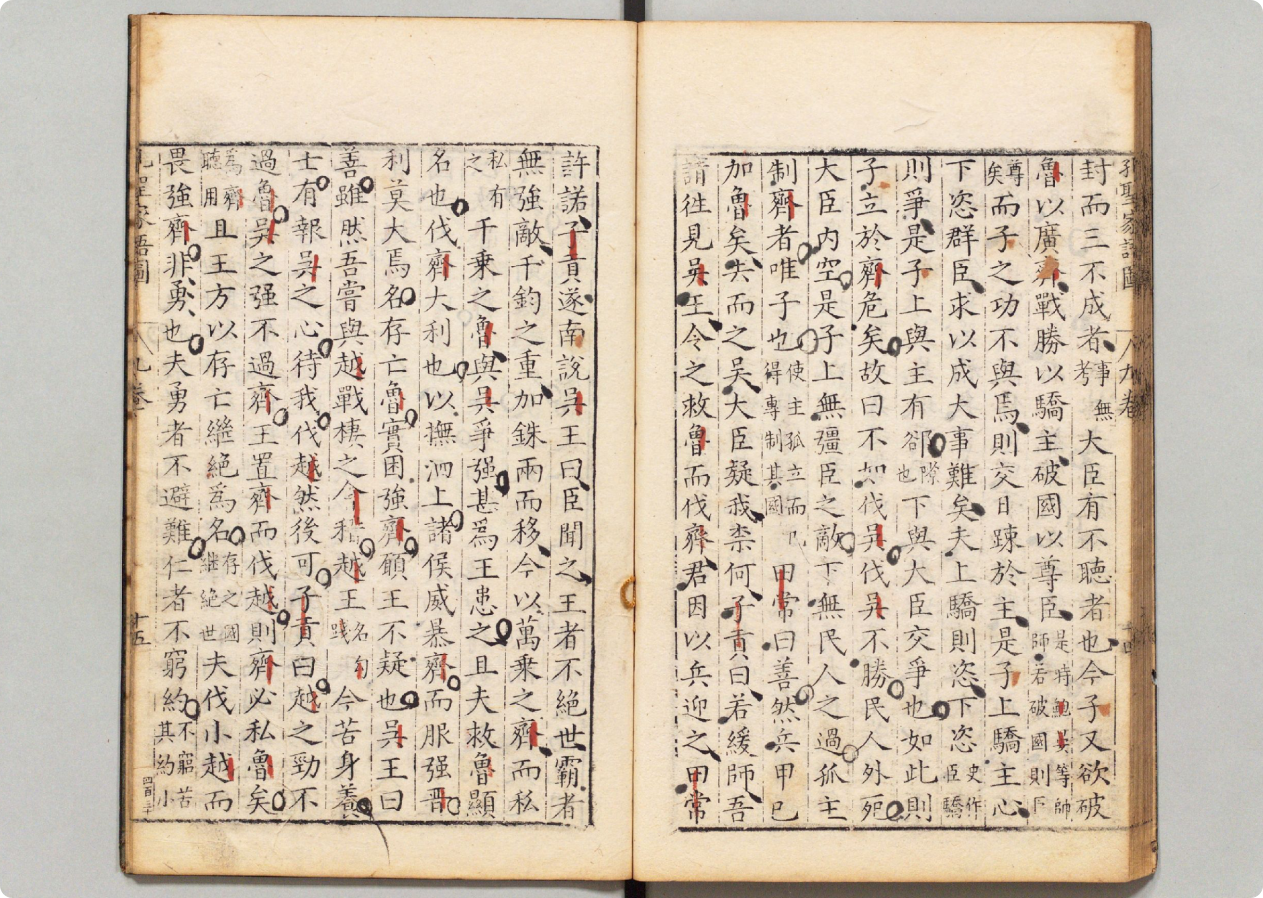 孔聖家語圖 八九卷 十四
封而三不成者事無考大臣有不聽者也今子又欲破
魯以廣齊戰勝以驕主破國以尊臣是時鮑晏等帥師若破國則臣
尊矣而子之功不與焉則交日踈於主是子上驕主心
下恣群臣求以成大事難矣夫上驕則恣下恣史作臣驕
則爭是子上與主有郤隙也下與大臣交爭也如此則
子立於齊危矣故曰不如伐吳伐吳不勝民人外死
大臣内空是子上無彊臣之敵下無民人之過孤主
制齊者唯子也使主孤立而已得專制其國田常曰善然兵甲已
加魯矣去而之吳大臣疑我柰何子貢曰若緩師吾
請徃見吳王令之救魯而伐齊君因以兵迎之田常
許諾子貢遂南說吳王曰臣聞之王者不絶世霸者
無強敵千鈞之重加銖兩而移今以萬乘之齊而私
私有之千乘之魯與吳爭强甚爲王患之且夫救魯顯
名也伐齊大利也以撫泗上諸侯威暴齊而服强晉
利莫大焉名存亡魯實困強齊願王不疑也吳王曰
善雖然吾嘗與越戰棲之會稽越王名勾踐今苦身養
士有報吳之心待我伐越然後可子貢曰越之勁不
過魯吳之强不過齊王置齊而伐越則齊必私魯矣
爲齊聽用且王方以存亡繼絶爲名存之國繼絶世夫伐小越而
畏強齊非勇也夫勇者不避難仁者不窮約不窮苦其約小
孔聖家語圖 八九卷 十五